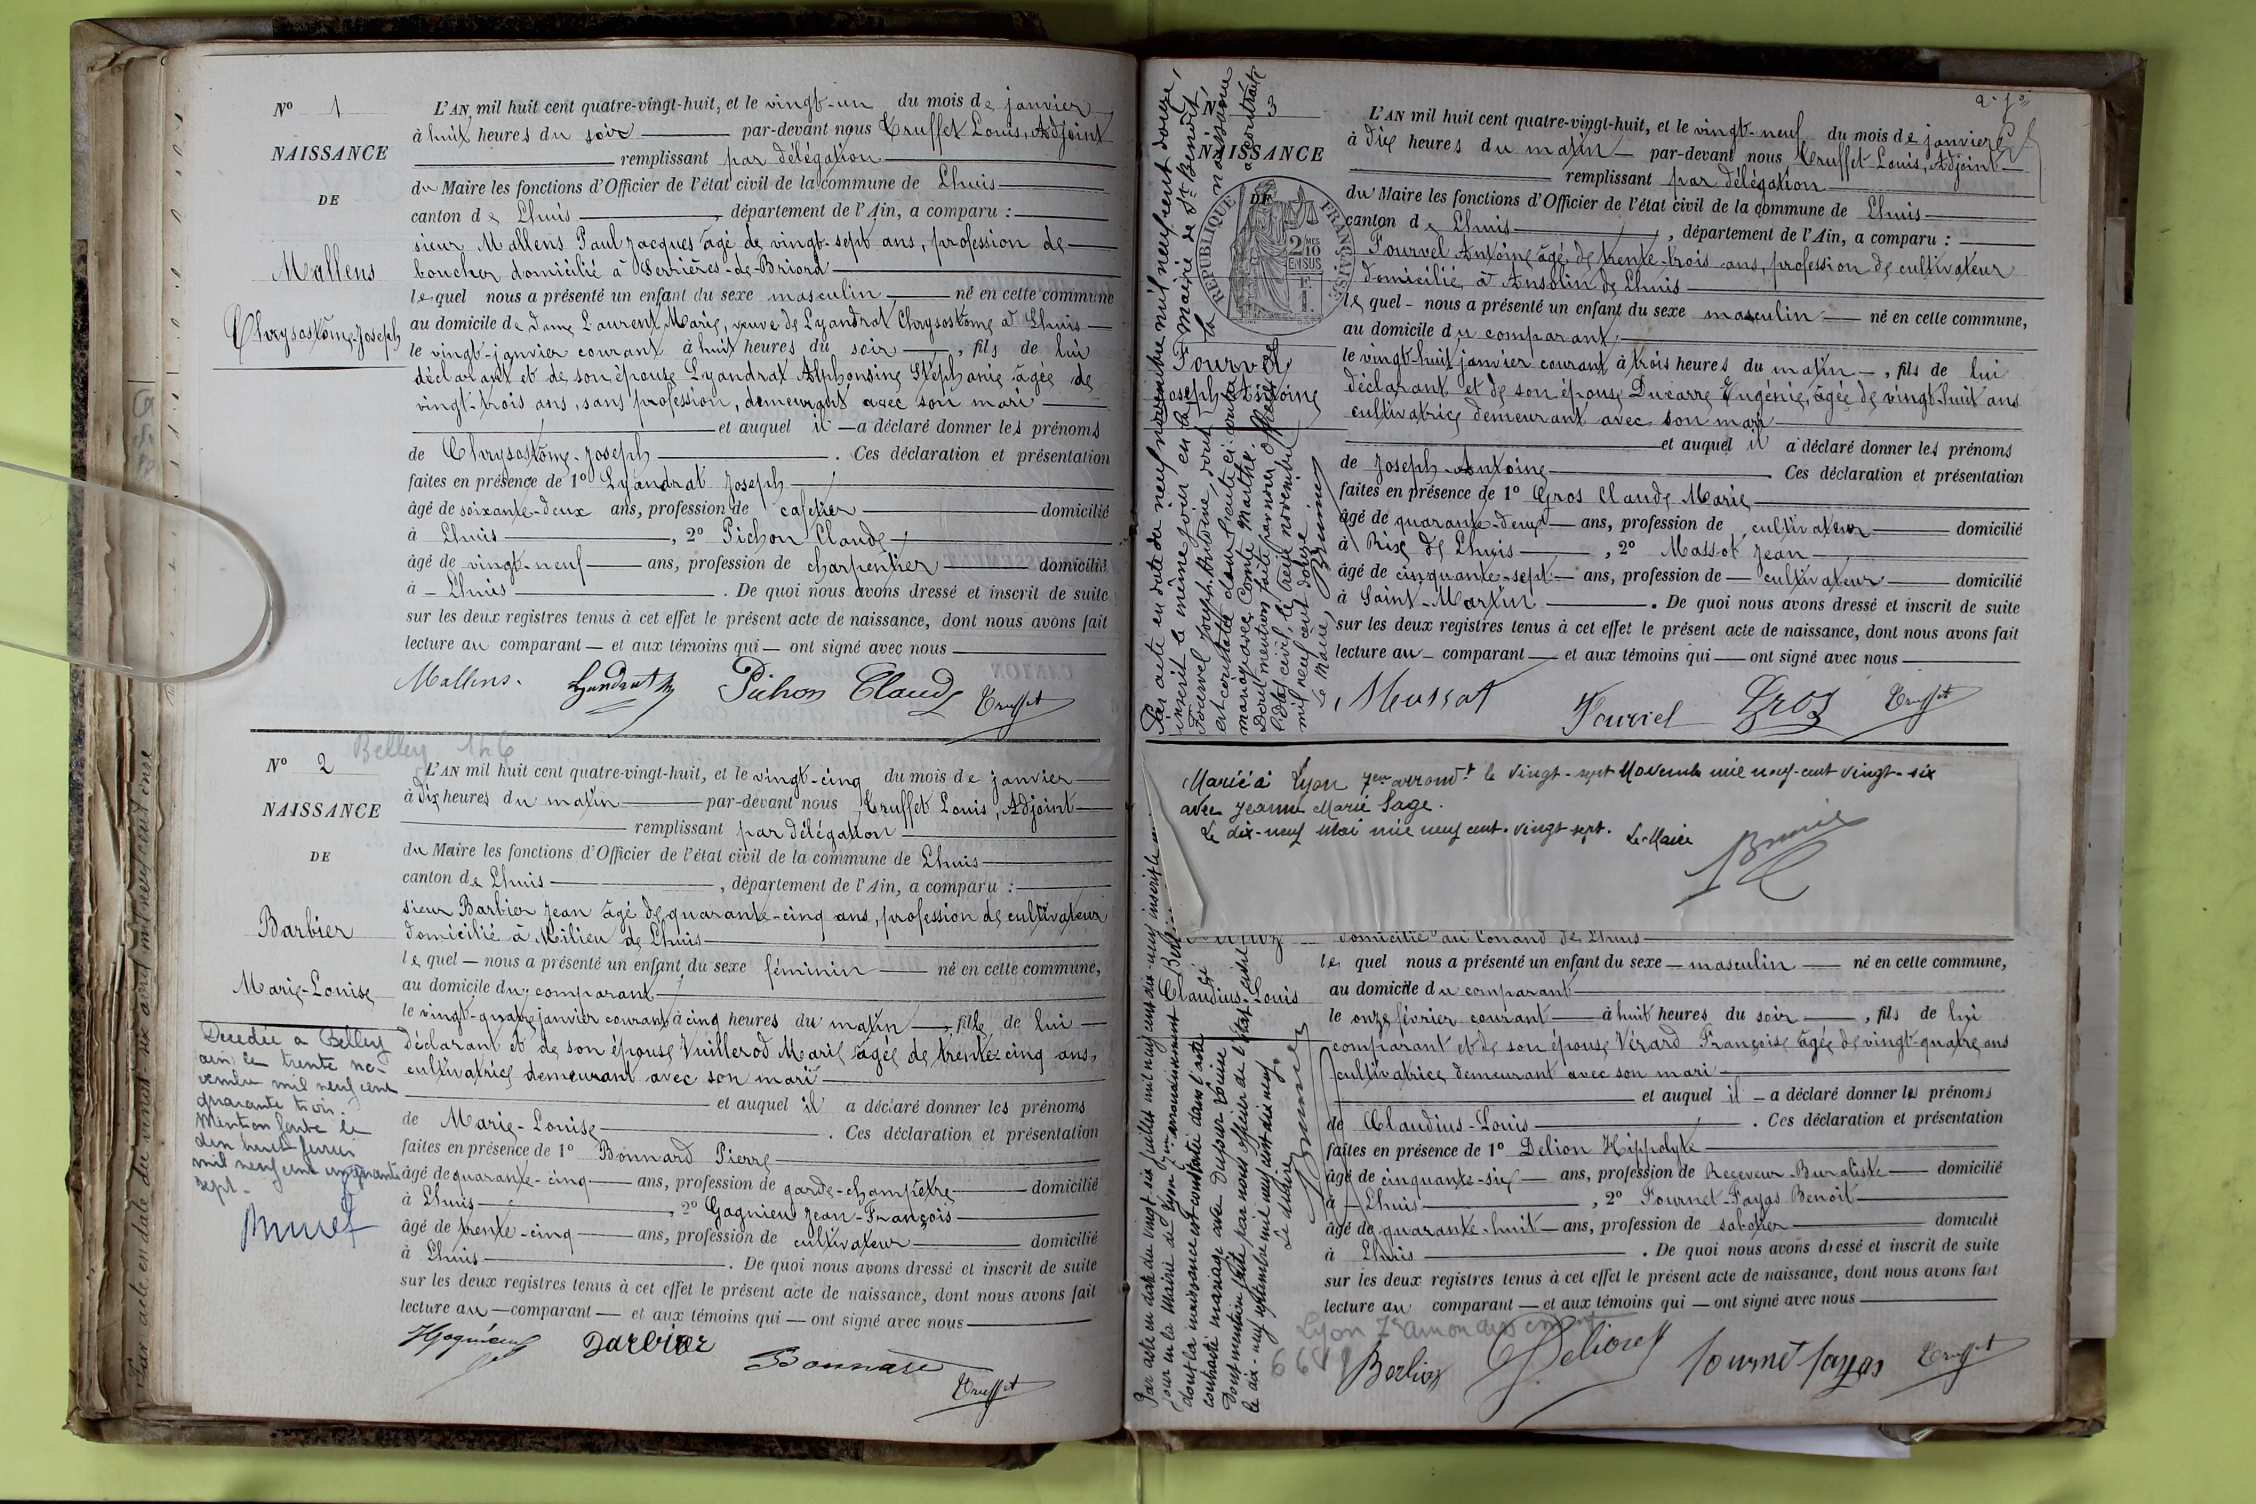 N° 1
NAISSANCE
DE
Mallens
Chrysostôme-Joseph
L'AN mil huit cent quatre-vingt-huit, et le vingt-un du mois de janvier
à huit heures du soir par-devant nous Truffet Louis, Adjoint
remplissant par délégation
du Maire les fonctions d'Officier de l'état civil de la commune de Lhuis
canton de Lhuis, département de l'Ain, a comparu :
sieur Mallens Paul Jacques âgé de vingt-sept ans, profession de
boucher domicilié à Serrières-de-Briord
lequel nous a présenté un enfant du sexe masculin né en cette commune
au domicile de Dame Laurent Marie, veuve de Lyandrat Chrysostôme à Lhuis
le vingt janvier courant à huit heures du soir, fils de lui
déclarant et de son épouse Lyandrat Alphonsine Stéphanie âgée de
vingt-trois ans, sans profession, demeurant avec son mari
et auquel il a déclaré donner les prénoms
de Chrysostôme-Joseph. Ces déclaration et présentation
faites en présence de 1° Lyandrat Joseph
âgé de soixante-deux ans, profession de cafetier domicilié
à Lhuis, 2° Pichon Claude
âgé de vingt-neuf ans, profession de charpentier domicilié
à Lhuis. De quoi nous avons dressé et inscrit de suite
sur les deux registres tenus à cet effet le présent acte de naissance, dont nous avons fait
lecture au comparant et aux témoins qui ont signé avec nous
Mallens. Lyandrat Pichon Claude Truffet
Belley 146
N° 2
NAISSANCE
DE
Barbier
Marie-Louise
Décédée à Belley
ain le trente no-
vembre mil neuf cent
quarante trois.
Mention faite le
dix huit
mil neuf cent cinquante
sept.
L'AN mil huit cent quatre-vingt-huit, et le vingt-cinq du mois de janvier
à dix heures du matin par-devant nous Truffet Louis, Adjoint
remplissant par délégation
du Maire les fonctions d'Officier de l'état civil de la commune de Lhuis
canton de Lhuis, département de l'Ain, a comparu :
sieur Barbier Jean âgé de quarante-cinq ans, profession de cultivateur
domicilié à Milieu de Lhuis
lequel nous a présenté un enfant du sexe féminin né en cette commune,
au domicile du comparant
le vingt-quatre janvier courant à cinq heures du matin, fille de lui
déclarant et de son épouse Vuillerod Marie âgée de trente-cinq ans,
cultivatrice demeurant avec son mari
et auquel il a déclaré donner les prénoms
de Marie-Louise. Ces déclaration et présentation
faites en présence de 1° Bonnard Pierre
âgé de quarante-cinq ans, profession de garde-champêtre domicilié
à Lhuis, 2° Gagnieu Jean-François
âgé de trente-cinq ans, profession de cultivateur domicilié
à Lhuis. De quoi nous avons dressé et inscrit de suite
sur les deux registres tenus à cet effet le présent acte de naissance, dont nous avons fait
lecture au comparant et aux témoins qui ont signé avec nous
Barbier Bonnard Truffet
N° 3
NAISSANCE
DE
RÉPUBLIQUE FRANÇAISE
2 MES 10 EN SUS
Fourvel
Joseph-Antoine
Par acte en date du neuf novembre mil neuf cent douze,
inscrit le même jour en la Mairie de St Benoit,
Fourvel Joseph Antoine, dont la naissance
est constatée dans l'acte ci-contre a contracté
mariage avec Comte Marthe.
Dont mention faite par nous Officier de
l'état civil, le treize novembre
mil neuf cent douze.
Le Maire,
L'AN mil huit cent quatre-vingt-huit, et le vingt-neuf du mois de janvier
à dix heures du matin par-devant nous Truffet Louis, Adjoint
remplissant par délégation
du Maire les fonctions d'Officier de l'état civil de la commune de Lhuis
canton de Lhuis, département de l'Ain, a comparu :
Fourvel Antoine âgé de trente-trois ans, profession de cultivateur
domicilié à Ansolin de Lhuis
lequel nous a présenté un enfant du sexe masculin né en cette commune,
au domicile du comparant
le vingt-huit janvier courant à trois heures du matin, fils de lui
déclarant et de son épouse Ducarre Eugénie, âgée de vingt-huit ans
cultivatrice demeurant avec son mari
et auquel il a déclaré donner les prénoms
de Joseph-Antoine. Ces déclaration et présentation
faites en présence de 1° Gros Claude Marie
âgé de quarante-deux ans, profession de cultivateur domicilié
à Rix de Lhuis, 2° Massot Jean
âgé de cinquante-sept ans, profession de cultivateur domicilié
à Saint-Martin. De quoi nous avons dressé et inscrit de suite
sur les deux registres tenus à cet effet le présent acte de naissance, dont nous avons fait
lecture au comparant et aux témoins qui ont signé avec nous
Massot Fourvel Gros Truffet
Marié à Lyon 7em arrondt le vingt-sept Novembre mil neuf-cent vingt-six
avec Jeanne Marie Sage.
Le dix-neuf Mai mil neuf cent vingt sept. Le Maire
Claudius-Louis
Par acte en date du vingt six juillet mil neuf cent dix-neuf inscrit le
jour en la Mairie de Lyon
dont la naissance est constatée dans l'acte ci
contracté mariage avec
Dont mention faite par nous officier de l'état civil
le dix-neuf septembre mil neuf cent dix neuf.
Le Maire
domicilié au Conand de Lhuis
lequel nous a présenté un enfant du sexe masculin né en cette commune,
au domicile du comparant
le onze février courant à huit heures du soir, fils de lui
comparant et de son épouse Vérard Françoise âgée de vingt-quatre ans
cultivatrice demeurant avec son mari
et auquel il a déclaré donner les prénoms
de Claudius-Louis. Ces déclaration et présentation
faites en présence de 1° Delion Hippolyte
âgé de cinquante-six ans, profession de Receveur-Buraliste domicilié
à Lhuis, 2° Fournet-Fayas Benoit
âgé de quarante-huit ans, profession de sabotier domicilié
à Lhuis. De quoi nous avons dressé et inscrit de suite
sur les deux registres tenus à cet effet le présent acte de naissance, dont nous avons fait
lecture au comparant et aux témoins qui ont signé avec nous
Lyon 7e
Berlioz Delion Fournet Fayas Truffet